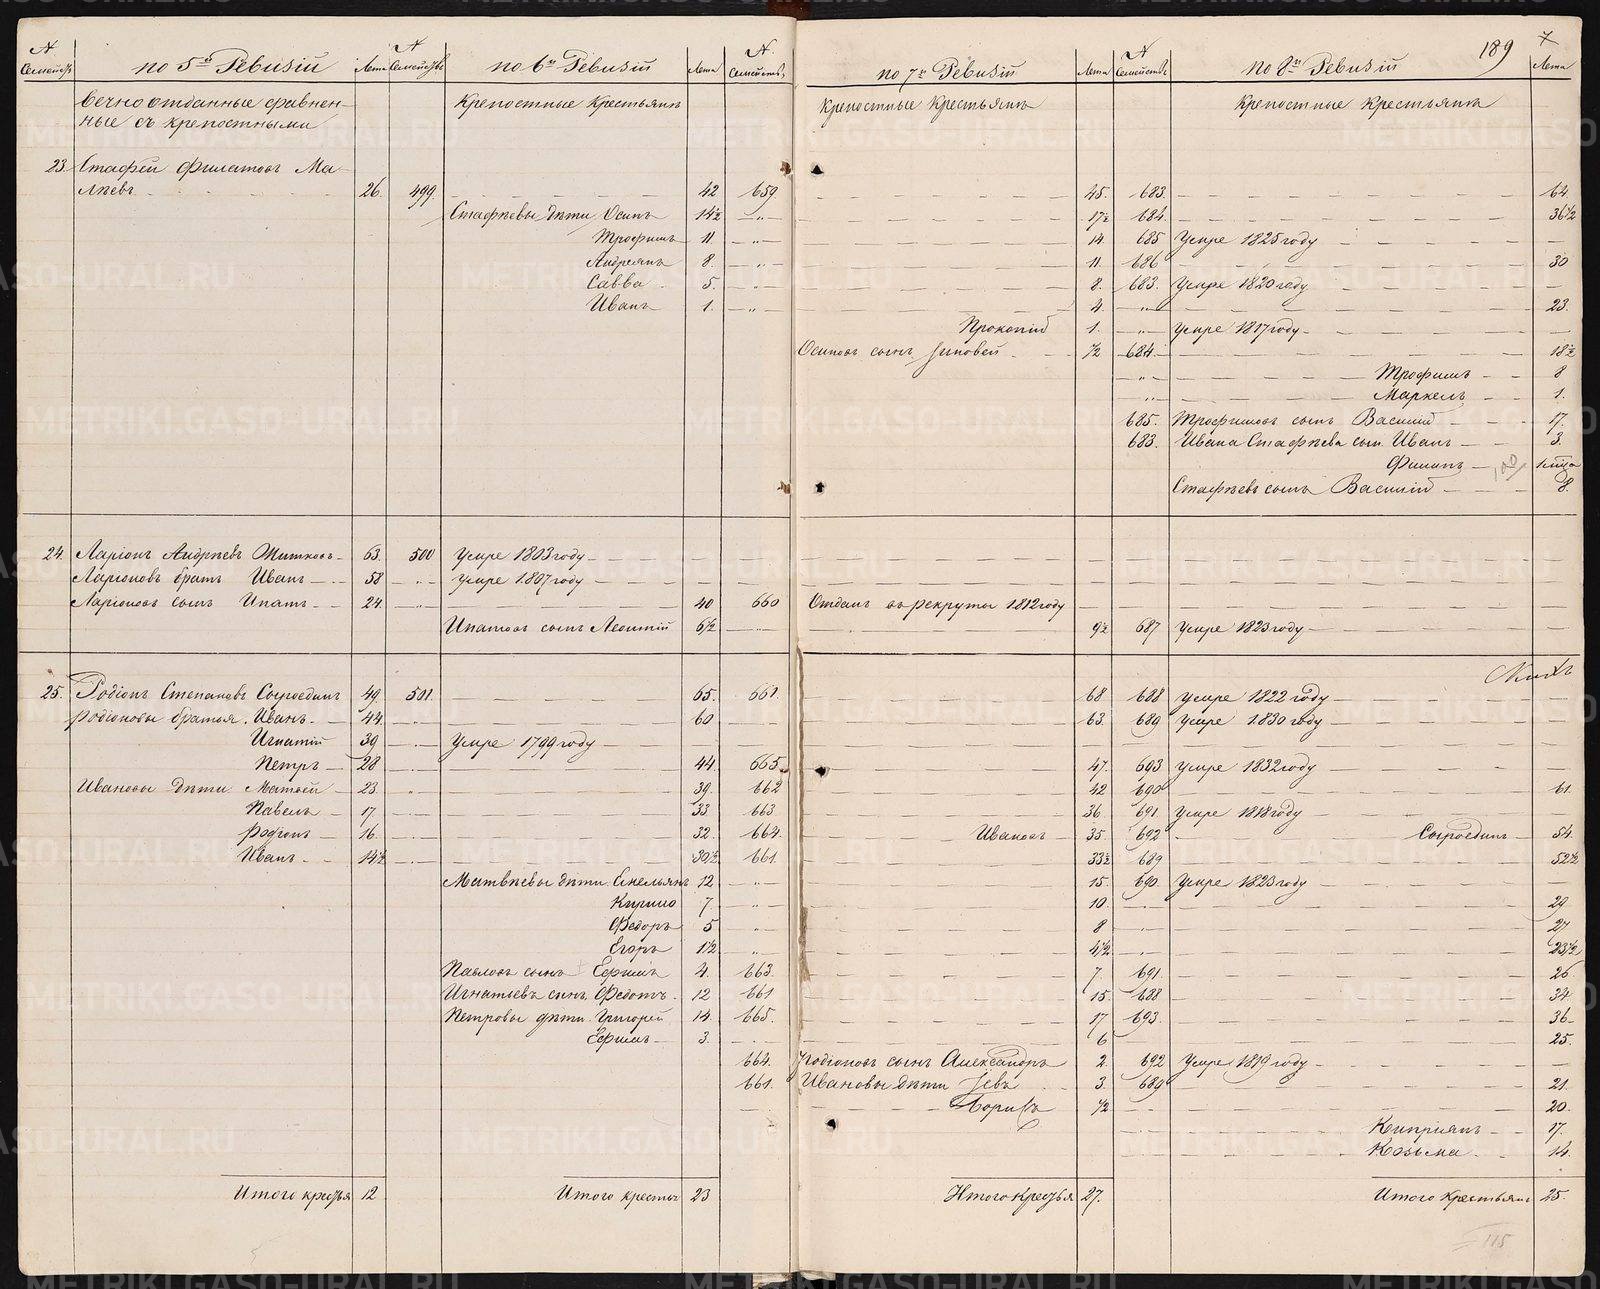 № Семействъ по 5й Ревизіи Лета № Семействъ по 6й Ревизіи Лета № Семействъ по 7й Ревизіи Лета № Семействъ по 8й Ревизіи Лета
189
Вечно отданные сравнен-
ные съ крепостными
Крепостные Крестьянъ Крепостные Крестьянъ Крепостные Крестьянъ
23. Стафей Филатовъ Ма-
26. 499. 42 659. 45. 683. 64
Стафѣевы дѣти Осипъ 14½ 17½ 684. 36½
Трофимъ 11. 14. 685 Умре 1825 году
Андреянъ 8. 11. 686 30
Савва 5. 8. 683. Умре 1820 году
Иванъ 1. 4. 23.
Прокопій 1. Умре 1817 году
Осиповъ сынъ Зиновей ½ 684. 18½
Трофимъ 8
Маркелъ 1.
685. Трофимовъ сынъ Василій 17.
683. Ивана Стафѣева сын. Иванъ 3.
Филипъ
Стафѣевъ сынъ Василій 8.
24. Ларіонъ Андрѣевъ Житковъ 63. 500 Умре 1803 году
Ларіоновъ братъ Иванъ 58 Умре 1807 году
Ларіоновъ сынъ Ипатъ 24. 40 660 Отданъ въ рекруты 1812 году
Ипатовъ сынъ Леонтій 6½ 9½ 687 Умре 1823 году
25. Родіонъ Степановъ Сыроединъ 49. 501. 65. 661. 68 688 Умре 1822 году
Родіоновы братья Иванъ 44. 60 63. 689 Умре 1830 году
Игнатій 39 Умре 1799 году
Петръ 28 44. 665. 47. 693 Умре 1832 году
Ивановы дѣти Матвей 23 39. 662 42 690 61.
Павелъ 17 33 663 36. 691. Умре 1818 году
Родіонъ 16. 32. 664. Ивановъ 35. 692 Сыроединъ 54.
Иванъ 14½ 30½ 661. 33½ 689 52½
Матвѣевы дѣти Емельянъ 12 15. 690. Умре 1823 году
Кирило 7 10. 29
Федоръ 5 8 27
Егоръ 1½ 4½ 23½
Павловъ сынъ Ефимъ 4. 663. 7. 691 26
Игнатьевъ сынъ Федотъ 12 661 15. 688 34
Петровы дѣти Григорей 14. 665. 17 693. 36
Ефимъ 3. 6 25.
664. Родіоновъ сынъ Александръ 2. 692 Умре 1819 году
661. Ивановы дѣти Іевъ 3. 689 21.
Борисъ ½ 20.
Кипріянъ 17.
Козьма 14.
Итого крестья 12 Итого крестья 23 Итого крестья 27. Итого Крестьянъ 25.
115
METRIKI.GASO-URAL.RU